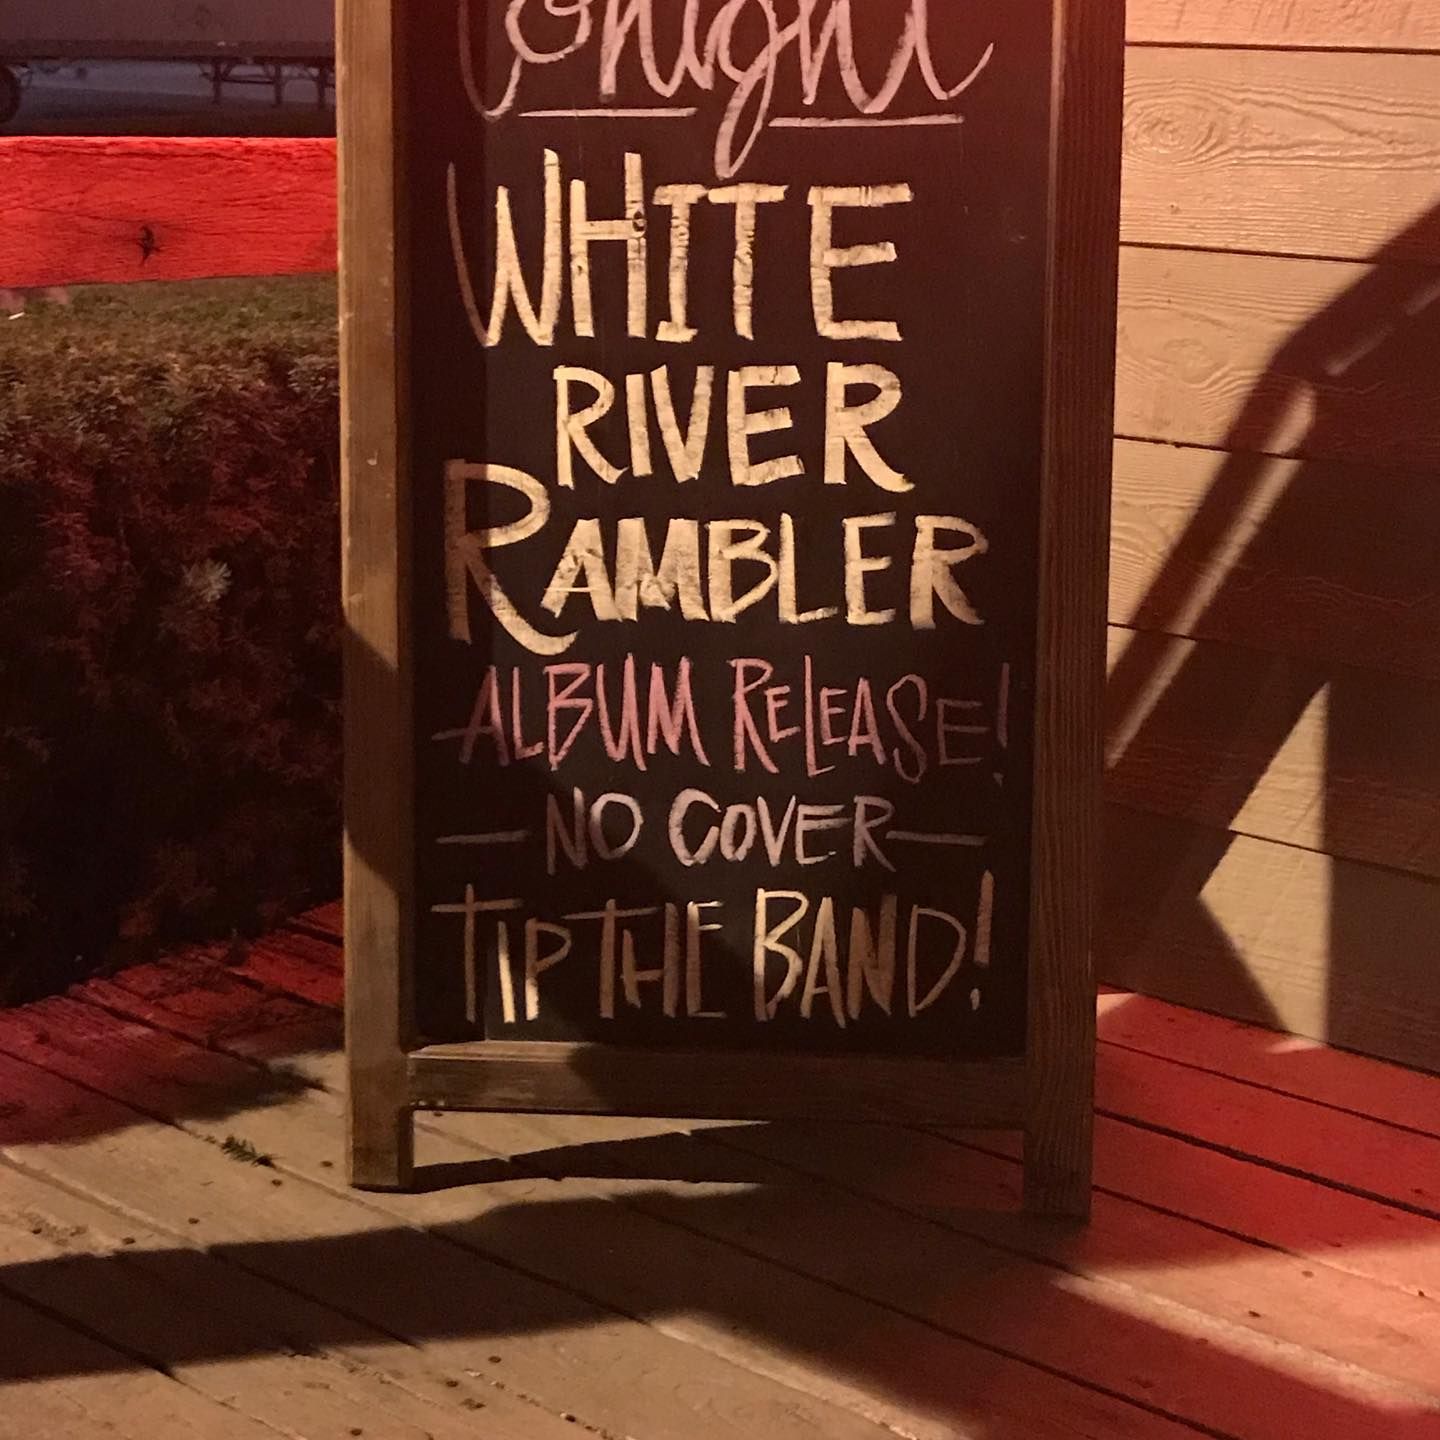 Tonight
WHITE
RIVER
RAMBLER
ALBUM RELEASE!
— NO COVER —
TIP THE BAND!